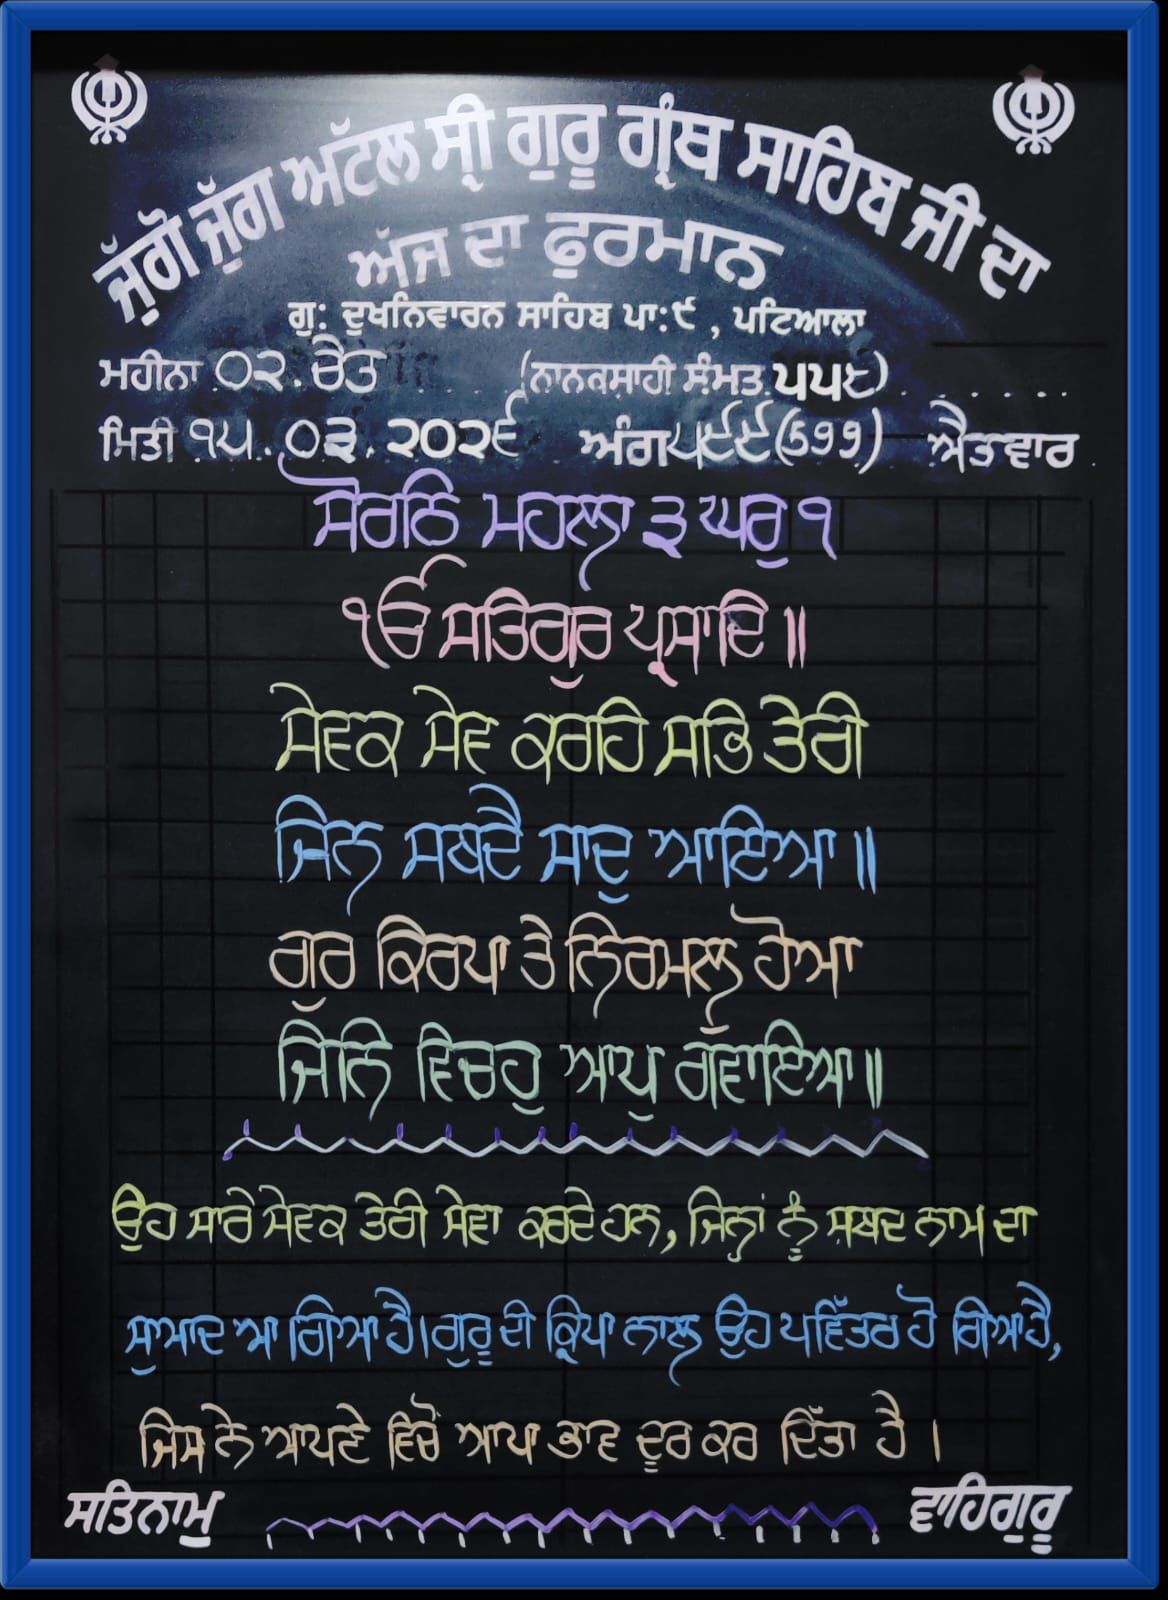 ਜੁੱਗੋ ਜੁੱਗ ਅਟੱਲ ਸ੍ਰੀ ਗੁਰੂ ਗ੍ਰੰਥ ਸਾਹਿਬ ਜੀ ਦਾ
ਅੱਜ ਦਾ ਫੁਰਮਾਨ
ਗੁ: ਦੁਖਨਿਵਾਰਨ ਸਾਹਿਬ ਪਾ:੯ , ਪਟਿਆਲਾ
ਮਹੀਨਾ ੦੨. ਚੈਤ (ਨਾਨਕਸਾਹੀ ਸੰਮਤ ੫੫੮)
ਮਿਤੀ ੧੫.੦੩.੨੦੨੬ ਅੰਗ ੫੯੯ (599) ਐਤਵਾਰ
ਸੋਰਠਿ ਮਹਲਾ ੩ ਘਰੁ ੧
ੴ ਸਤਿਗੁਰ ਪ੍ਰਸਾਦਿ ॥
ਸੇਵਕ ਸੇਵ ਕਰਹਿ ਸਭਿ ਤੇਰੀ
ਜਿਨ ਸਬਦੈ ਸਾਦੁ ਆਇਆ ॥
ਗੁਰ ਕਿਰਪਾ ਤੇ ਨਿਰਮਲੁ ਹੋਆ
ਜਿਨਿ ਵਿਚਹੁ ਆਪੁ ਗਵਾਇਆ ॥
ਉਹ ਸਾਰੇ ਸੇਵਕ ਤੇਰੀ ਸੇਵਾ ਕਰਦੇ ਹਨ, ਜਿਨ੍ਹਾਂ ਨੂੰ ਸ਼ਬਦ ਨਾਮ ਦਾ
ਸੁਆਦ ਆ ਗਿਆ ਹੈ। ਗੁਰੂ ਦੀ ਕ੍ਰਿਪਾ ਨਾਲ ਉਹ ਪਵਿੱਤਰ ਹੋ ਗਿਆ ਹੈ,
ਜਿਸ ਨੇ ਆਪਣੇ ਵਿਚੋਂ ਆਪਾ ਭਾਵ ਦੂਰ ਕਰ ਦਿੱਤਾ ਹੈ ।
ਸਤਿਨਾਮੁ ਵਾਹਿਗੁਰੂ